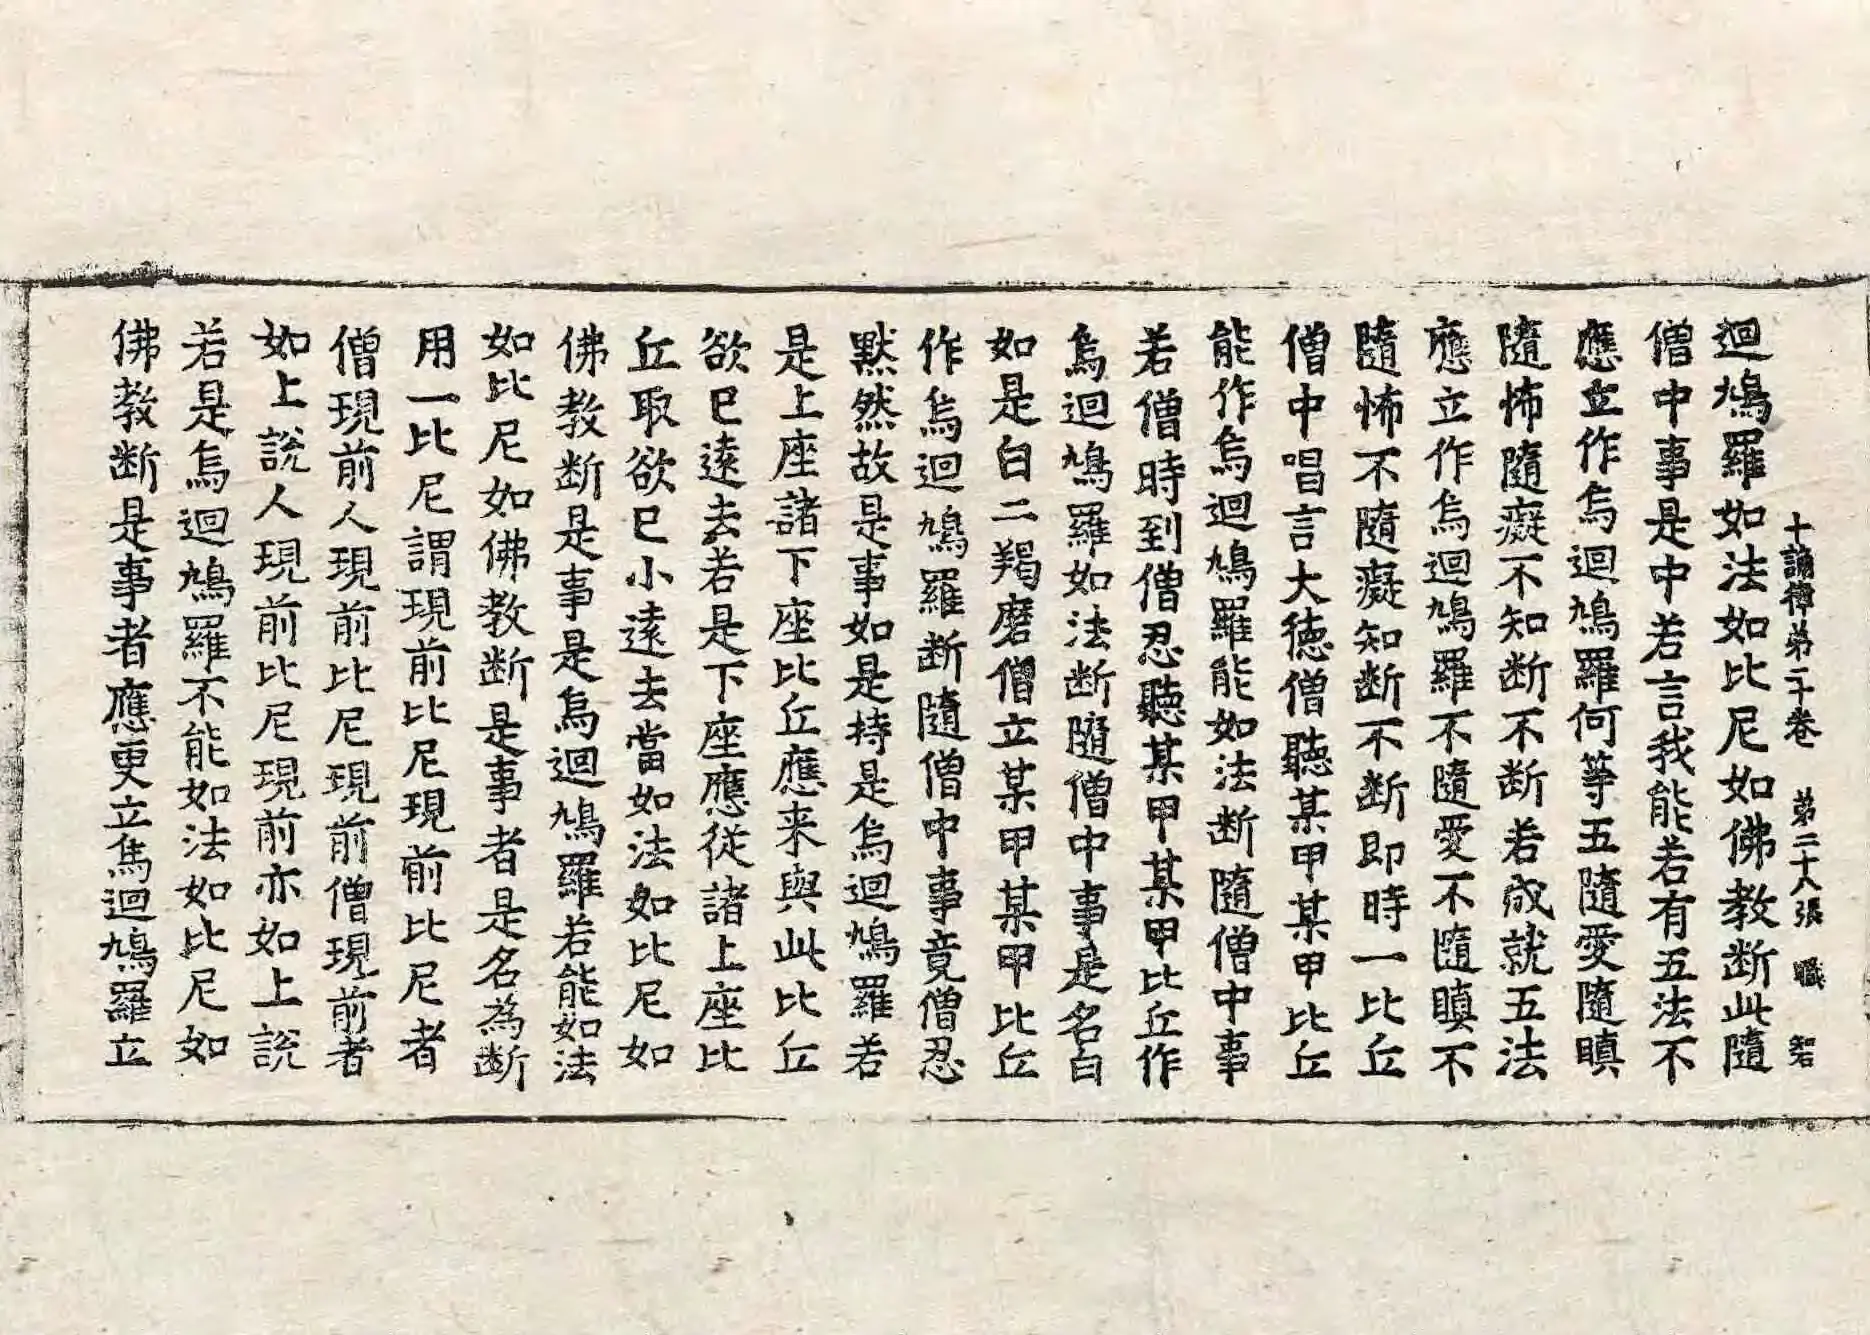 十誦律第二十卷 第二十八張 職 智
迴鳩羅如法如比尼如佛教断此隨
僧中事是中若言我能若有五法不
應立作烏迴鳩羅何等五隨愛隨瞋
隨怖隨癡不知断不断若成就五法
應立作烏迴鳩羅不隨愛不隨瞋不
隨怖不隨癡知断不断即時一比丘
僧中唱言大德僧聽某甲某甲比丘
能作烏迴鳩羅能如法断隨僧中事
若僧時到僧忍聽某甲某甲比丘作
烏迴鳩羅如法断隨僧中事是名白
如是白二羯磨僧立某甲某甲比丘
作烏迴鳩羅断隨僧中事竟僧忍
黙然故是事如是持是烏迴鳩羅若
是上座諸下座比丘應来與此比丘
欲已遠去若是下座應從諸上座比
丘取欲已小遠去當如法如比尼如
佛教断是事是烏迴鳩羅若能如法
如比尼如佛教断是事者是名為断
用一比尼謂現前比尼現前比尼者
僧現前人現前比尼現前僧現前者
如上說人現前比尼現前亦如上說
若是烏迴鳩羅不能如法如比尼如
佛教断是事者應更立烏迴鳩羅立